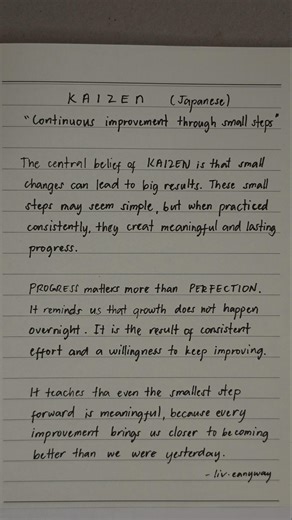 KAIZEN (Japanese)
"Continuous improvement through small steps"
The central belief of KAIZEN is that small
changes can lead to big results. These small
steps may seem simple, but when practiced
consistently, they creat meaningful and lasting
progress.
PROGRESS matters more than PERFECTION.
It reminds us that growth does not happen
overnight. It is the result of consistent
effort and a willingness to keep improving.
It teaches tha even the smallest step
forward is meaningful, because every
improvement brings us closer to becoming
better than we were yesterday.
- liv.eanyway